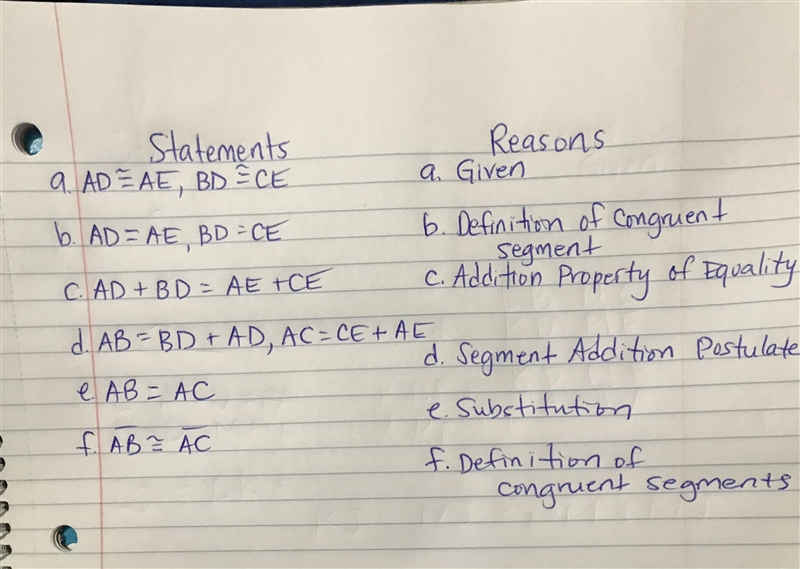 Statements Reasons
a. AD ≅ AE, BD ≅ CE a. Given
b. AD = AE, BD = CE b. Definition of Congruent
segment
c. AD + BD = AE + CE c. Addition Property of Equality
d. AB = BD + AD, AC = CE + AE d. Segment Addition Postulate
e. AB = AC e. Substitution
f. A̅B̅ ≅ A̅C̅ f. Definition of
congruent segments